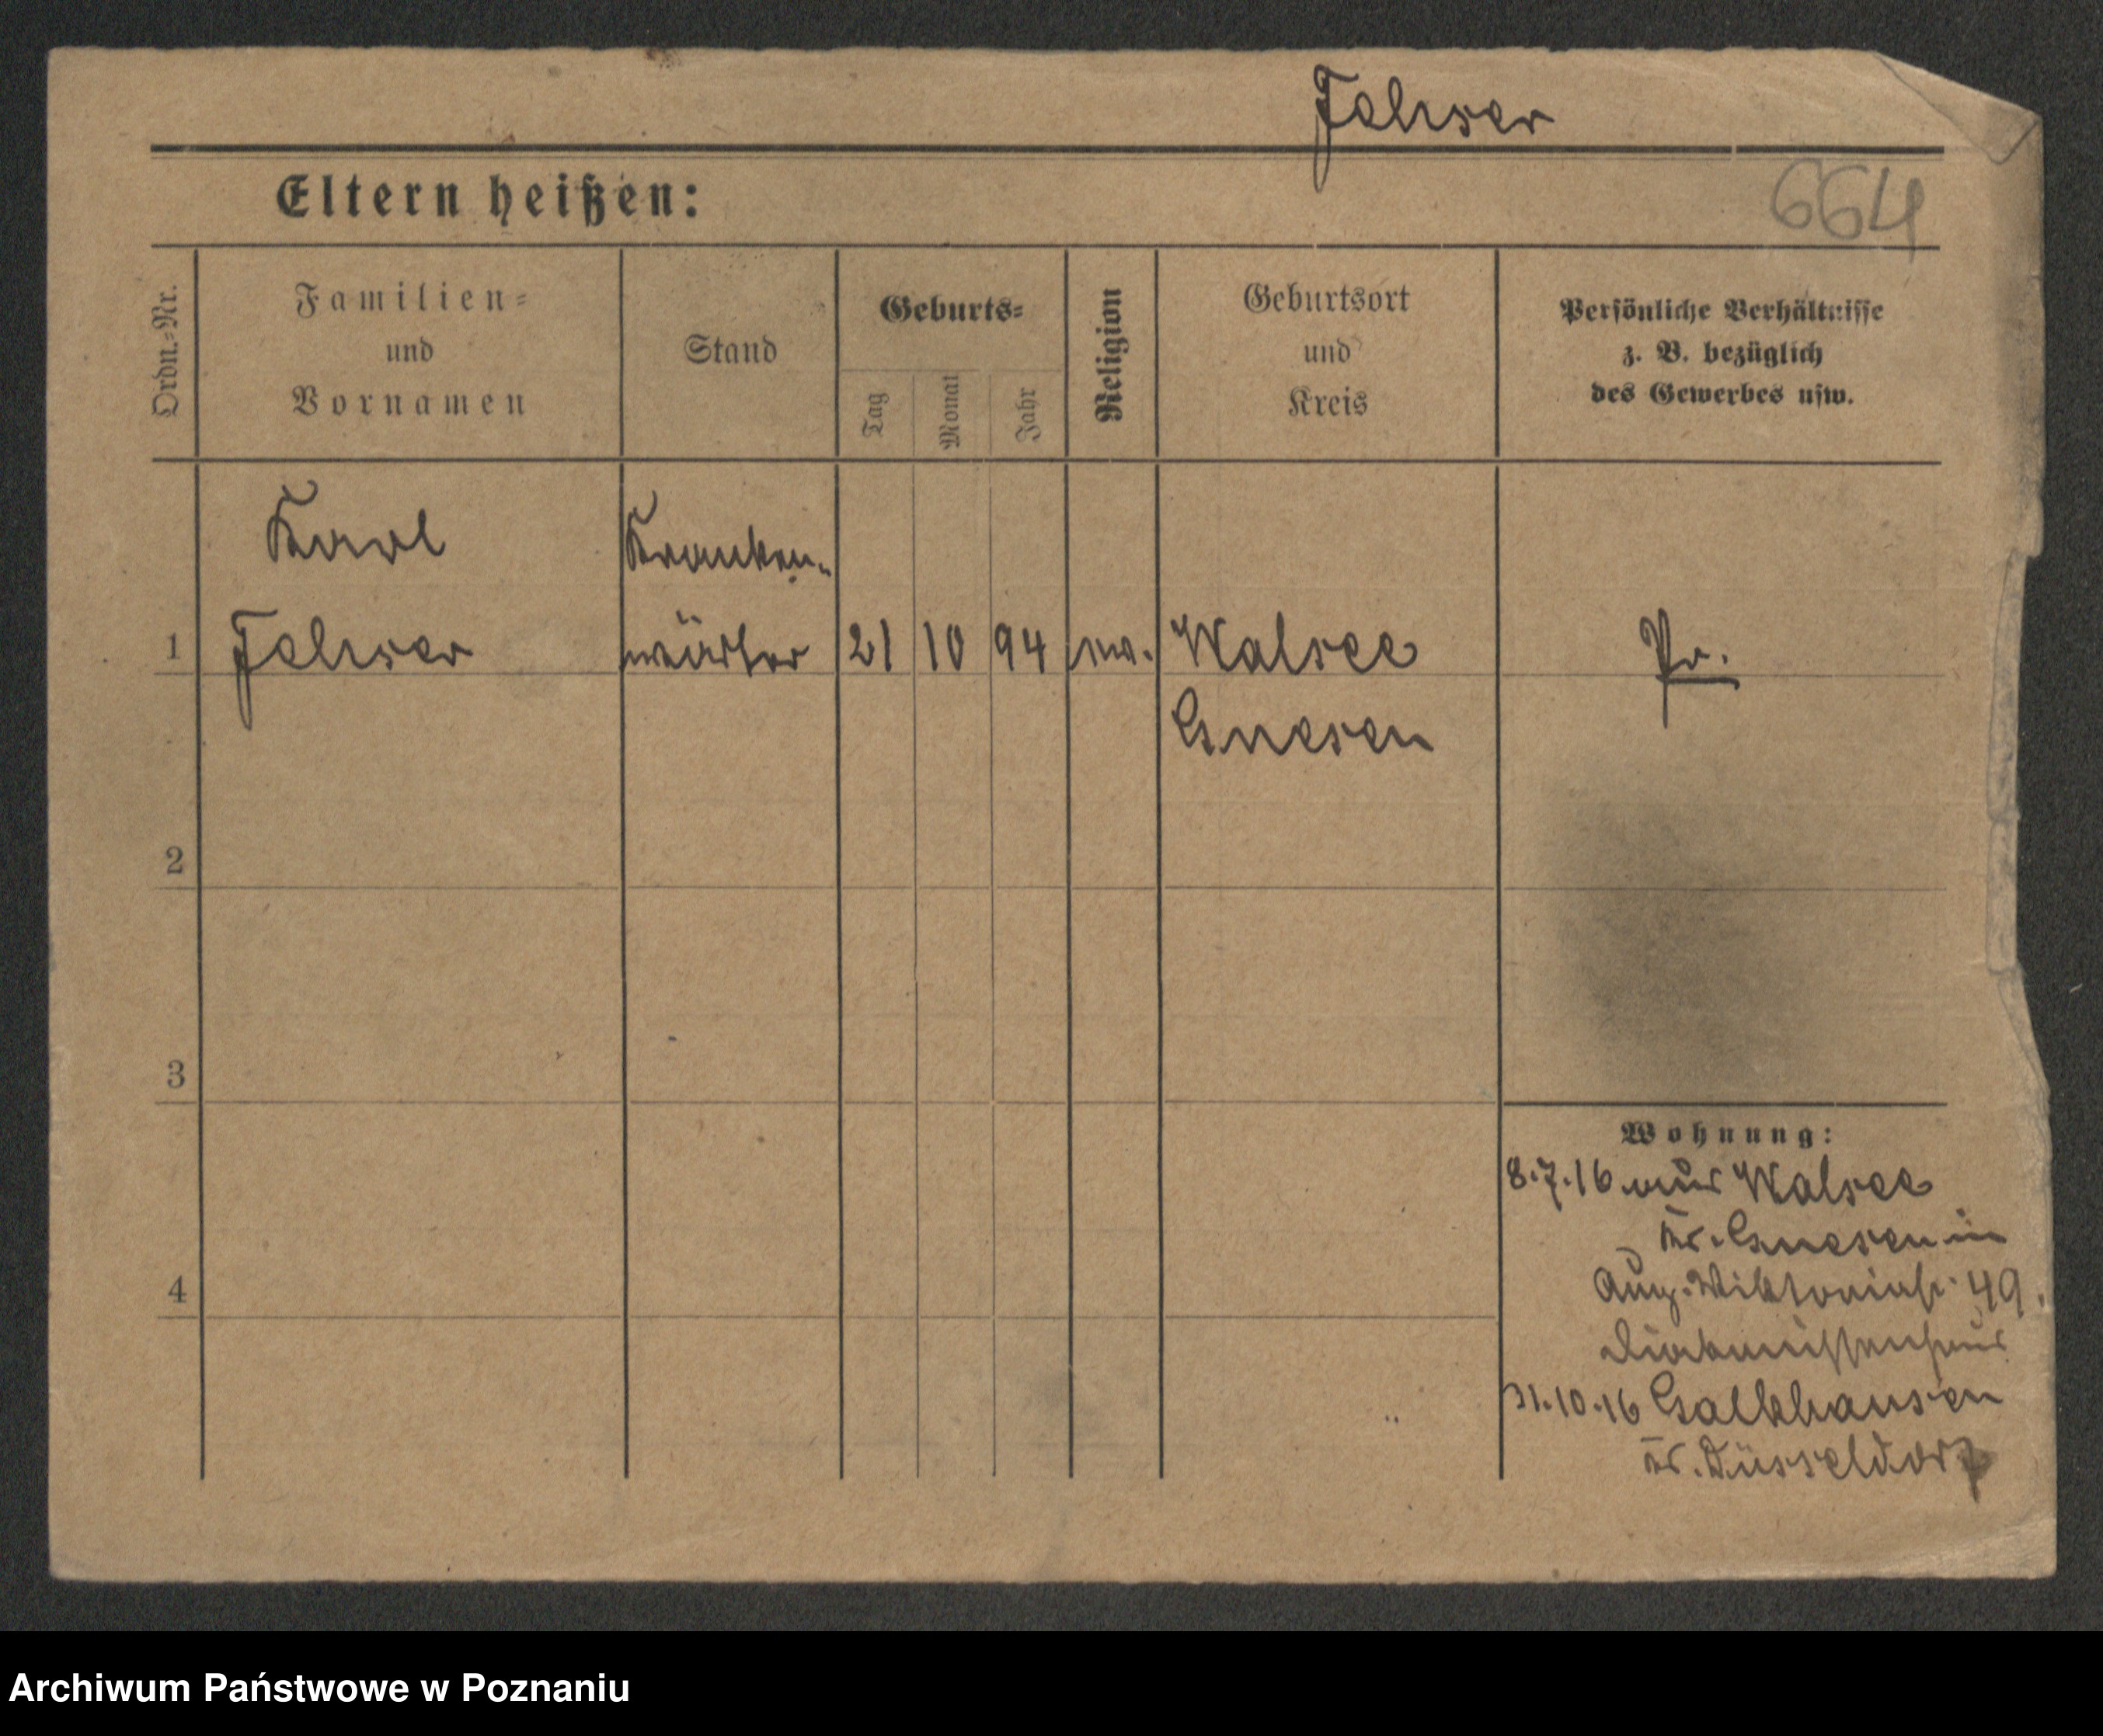 Fehser
Eltern heißen:
664
Ordn.-Nr.
Familien-
und
Vornamen
Stand
Geburts-
Tag
Monat
Jahr
Religion
Geburtsort
und
Kreis
Persönliche Verhältnisse
z. B. bezüglich
des Gewerbes usw.
Karl
Kranken-
1
Fehser
wärter
21
10
94
ev.
Walsee
Pr.
Gnesen
2
3
Wohnung:
8.7.16 aus Walsee
Kr. Gnesen in
4
Aug. Viktoriastr. 49.
Diakonissenhaus
31.10.16 Galkhausen
Kr. Düsseldorf
Archiwum Państwowe w Poznaniu